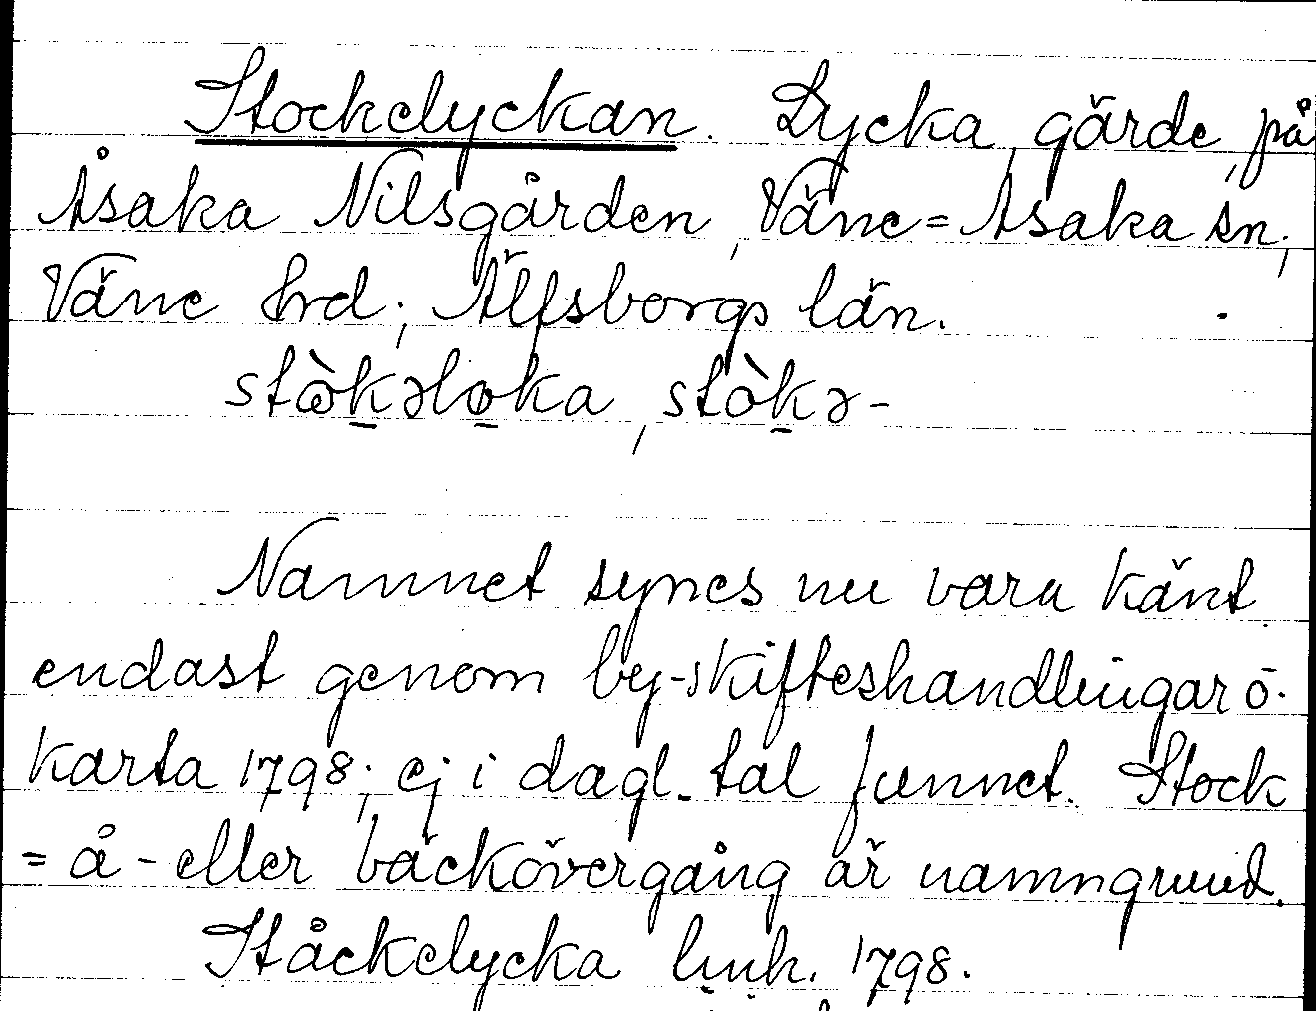 Stockelyckan. Lycka, gärde, på
Åsaka Nilsgården, Väne=Åsaka sn;
Väne Hrd; Älfsborgs län.
stòkəloka, stòkə-
Namnet synes nu vara känt
endast genom by-skifteshandlingar o.
karta 1798; ej i dagl. tal funnet. Stock
= å- eller bäckövergång är namngrund.
Ståckelycka 1798.